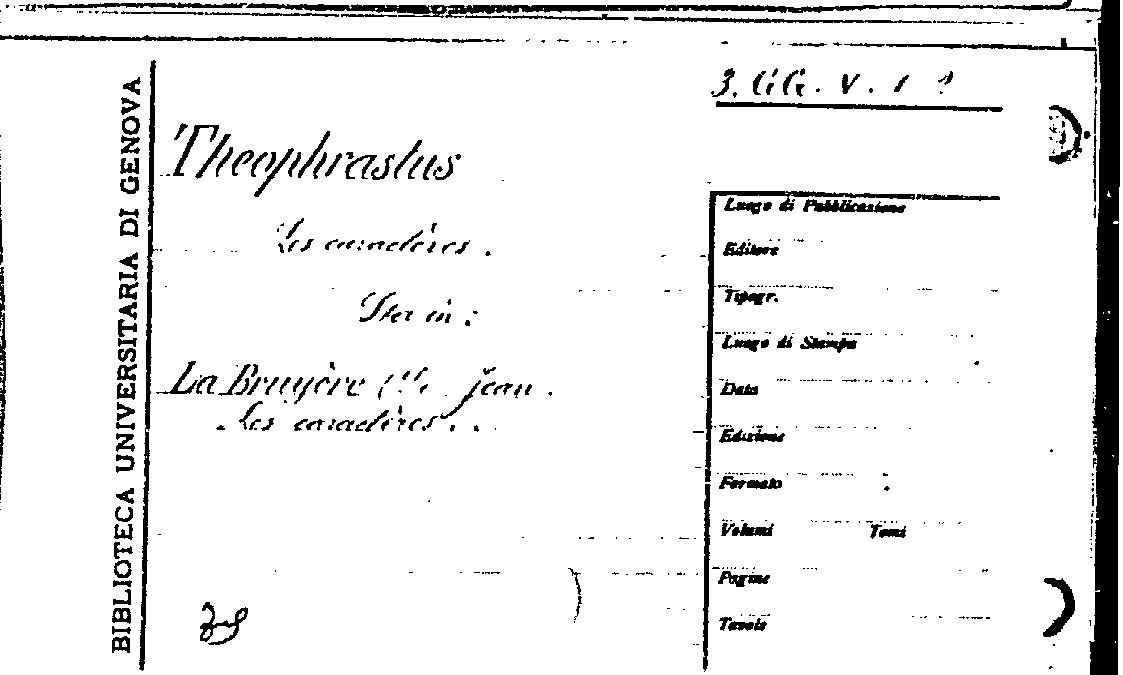 BIBLIOTECA UNIVERSITARIA DI GENOVA
3. GG. V. 1
Theophrastus
Les caractères.
Sta in:
La Bruyère Jean.
Les caractères..
Luogo di Pubblicazione
Editore
Tipogr.
Luogo di Stampa
Data
Edizione
Formato
Volumi Tomi
Pagine
Tavole